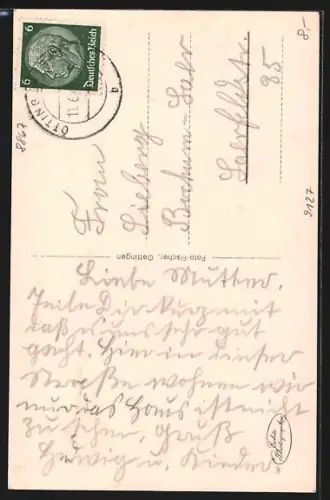 6 Deutsches Reich 6
ÖTTING
11.6
a
8.-
8867
9127
Frau
Lieberg
Bochum-Laer
Laerfeldstr.
85
Foto-Fischer, Oettingen
Liebe Mutter.
Teile Dir kurz mit
daß es uns sehr gut
geht. Hier in dieser
Straße wohnen wir
nur das Haus ist nicht
zu sehen. Gruß
Hedwig u. Kinder.
Echte
Photographie